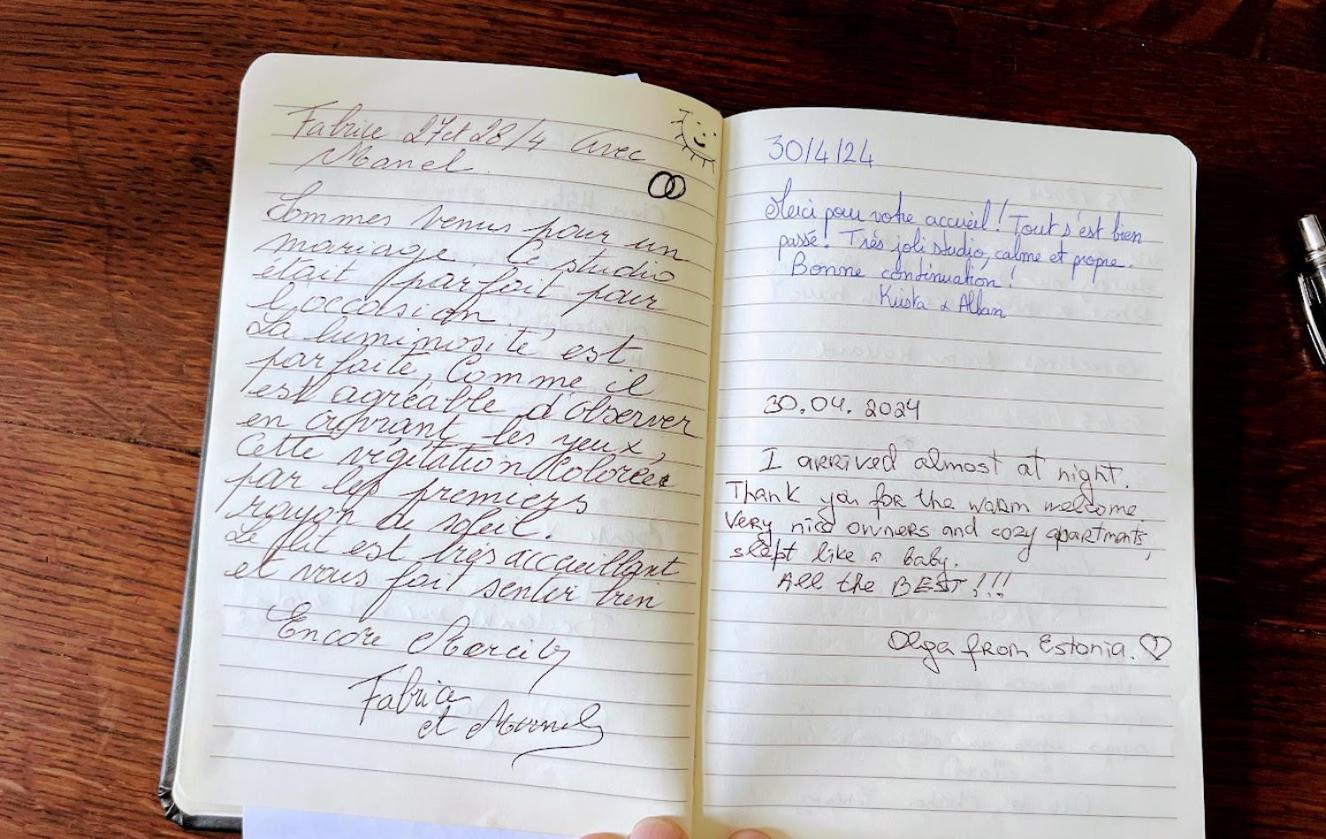 Fabrice 27 et 28/4 avec
Manel.
Sommes venus pour un
mariage. Le studio
était parfait pour
l'occasion.
La luminosité est
parfaite, Comme il
est agréable d'observer
en ouvrant les yeux,
Cette végétation colorée
par les premiers
rayon du soleil.
Le lit est très accueillant
et vous fait sentir bien
Encore Merci
Fabrice
et Manel
30/4/24
Merci pour votre accueil! Tout s'est bien
passé! Très joli studio, calme et propre.
Bonne continuation!
& Alban
30.04.2024
I arrived almost at night.
Thank you for the warm welcome
Very nice owners and cozy apartments,
slept like a baby.
All the BEST!!!
Olga from Estonia. ♡